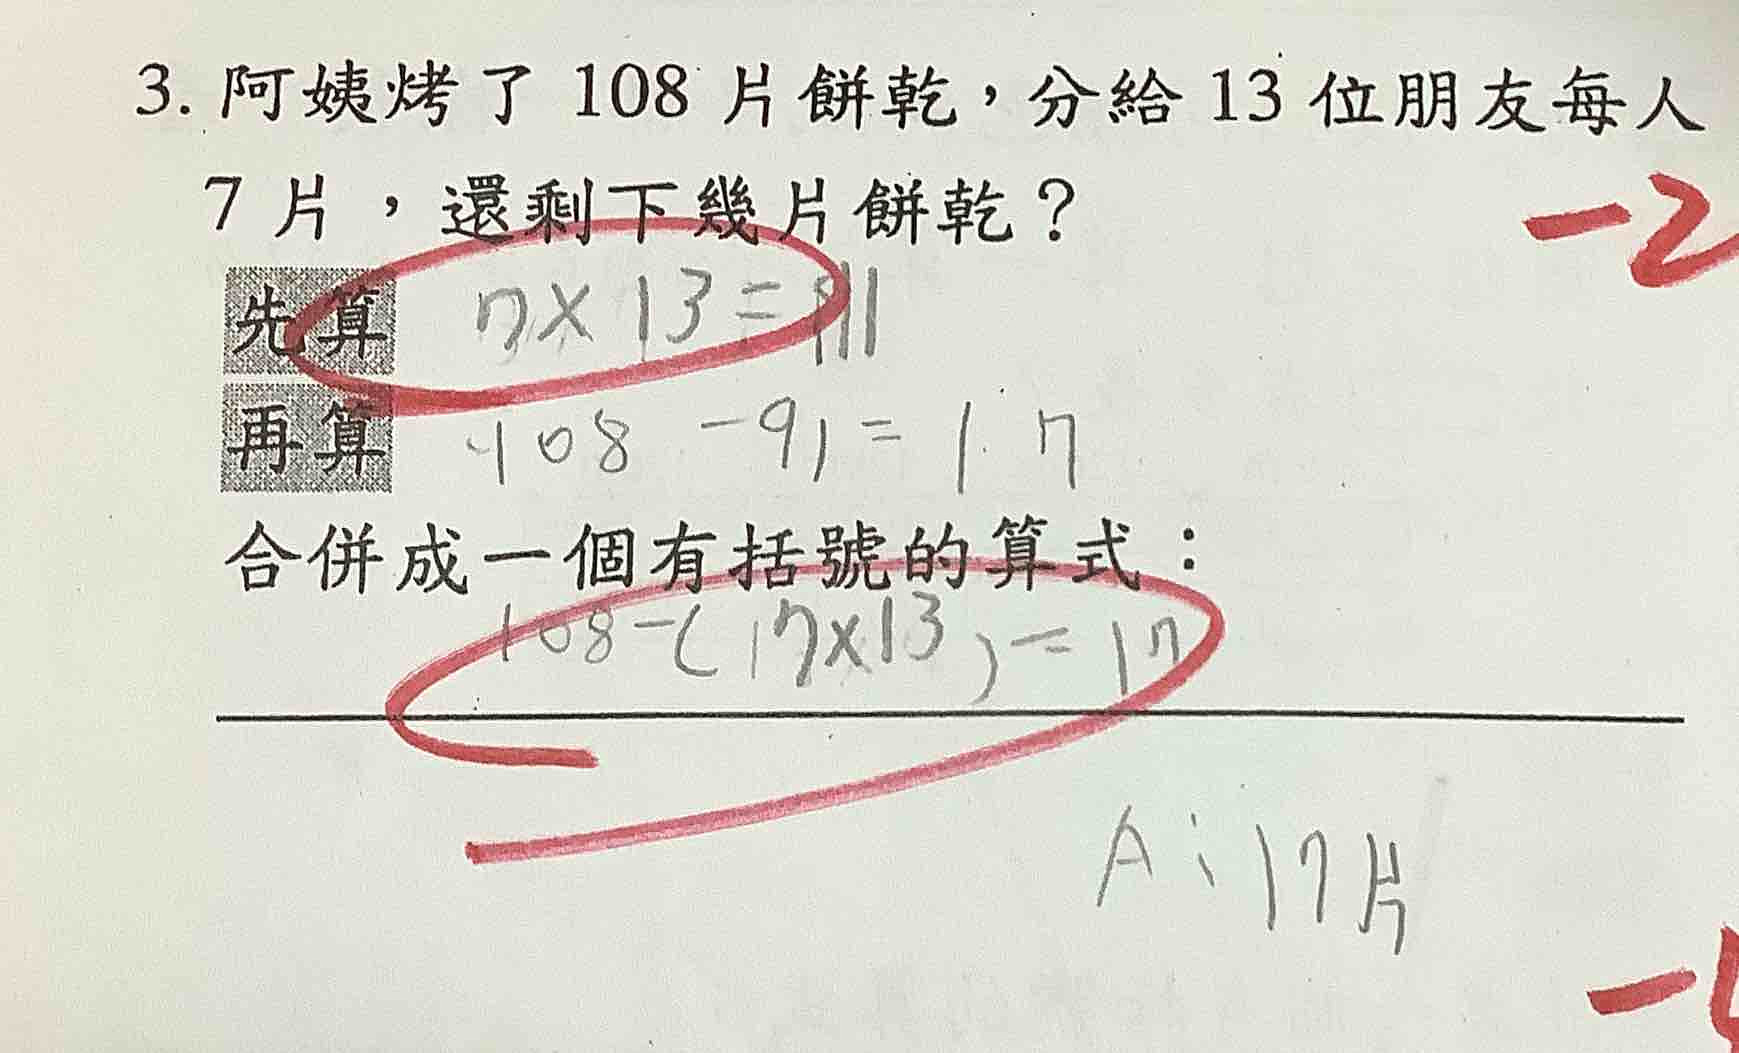 3. 阿姨烤了 108 片餅乾，分給 13 位朋友每人
7 片，還剩下幾片餅乾？
-2
先算 7×13=111
再算 108-91=17
合併成一個有括號的算式：
108-(17×13)=17
A：17片